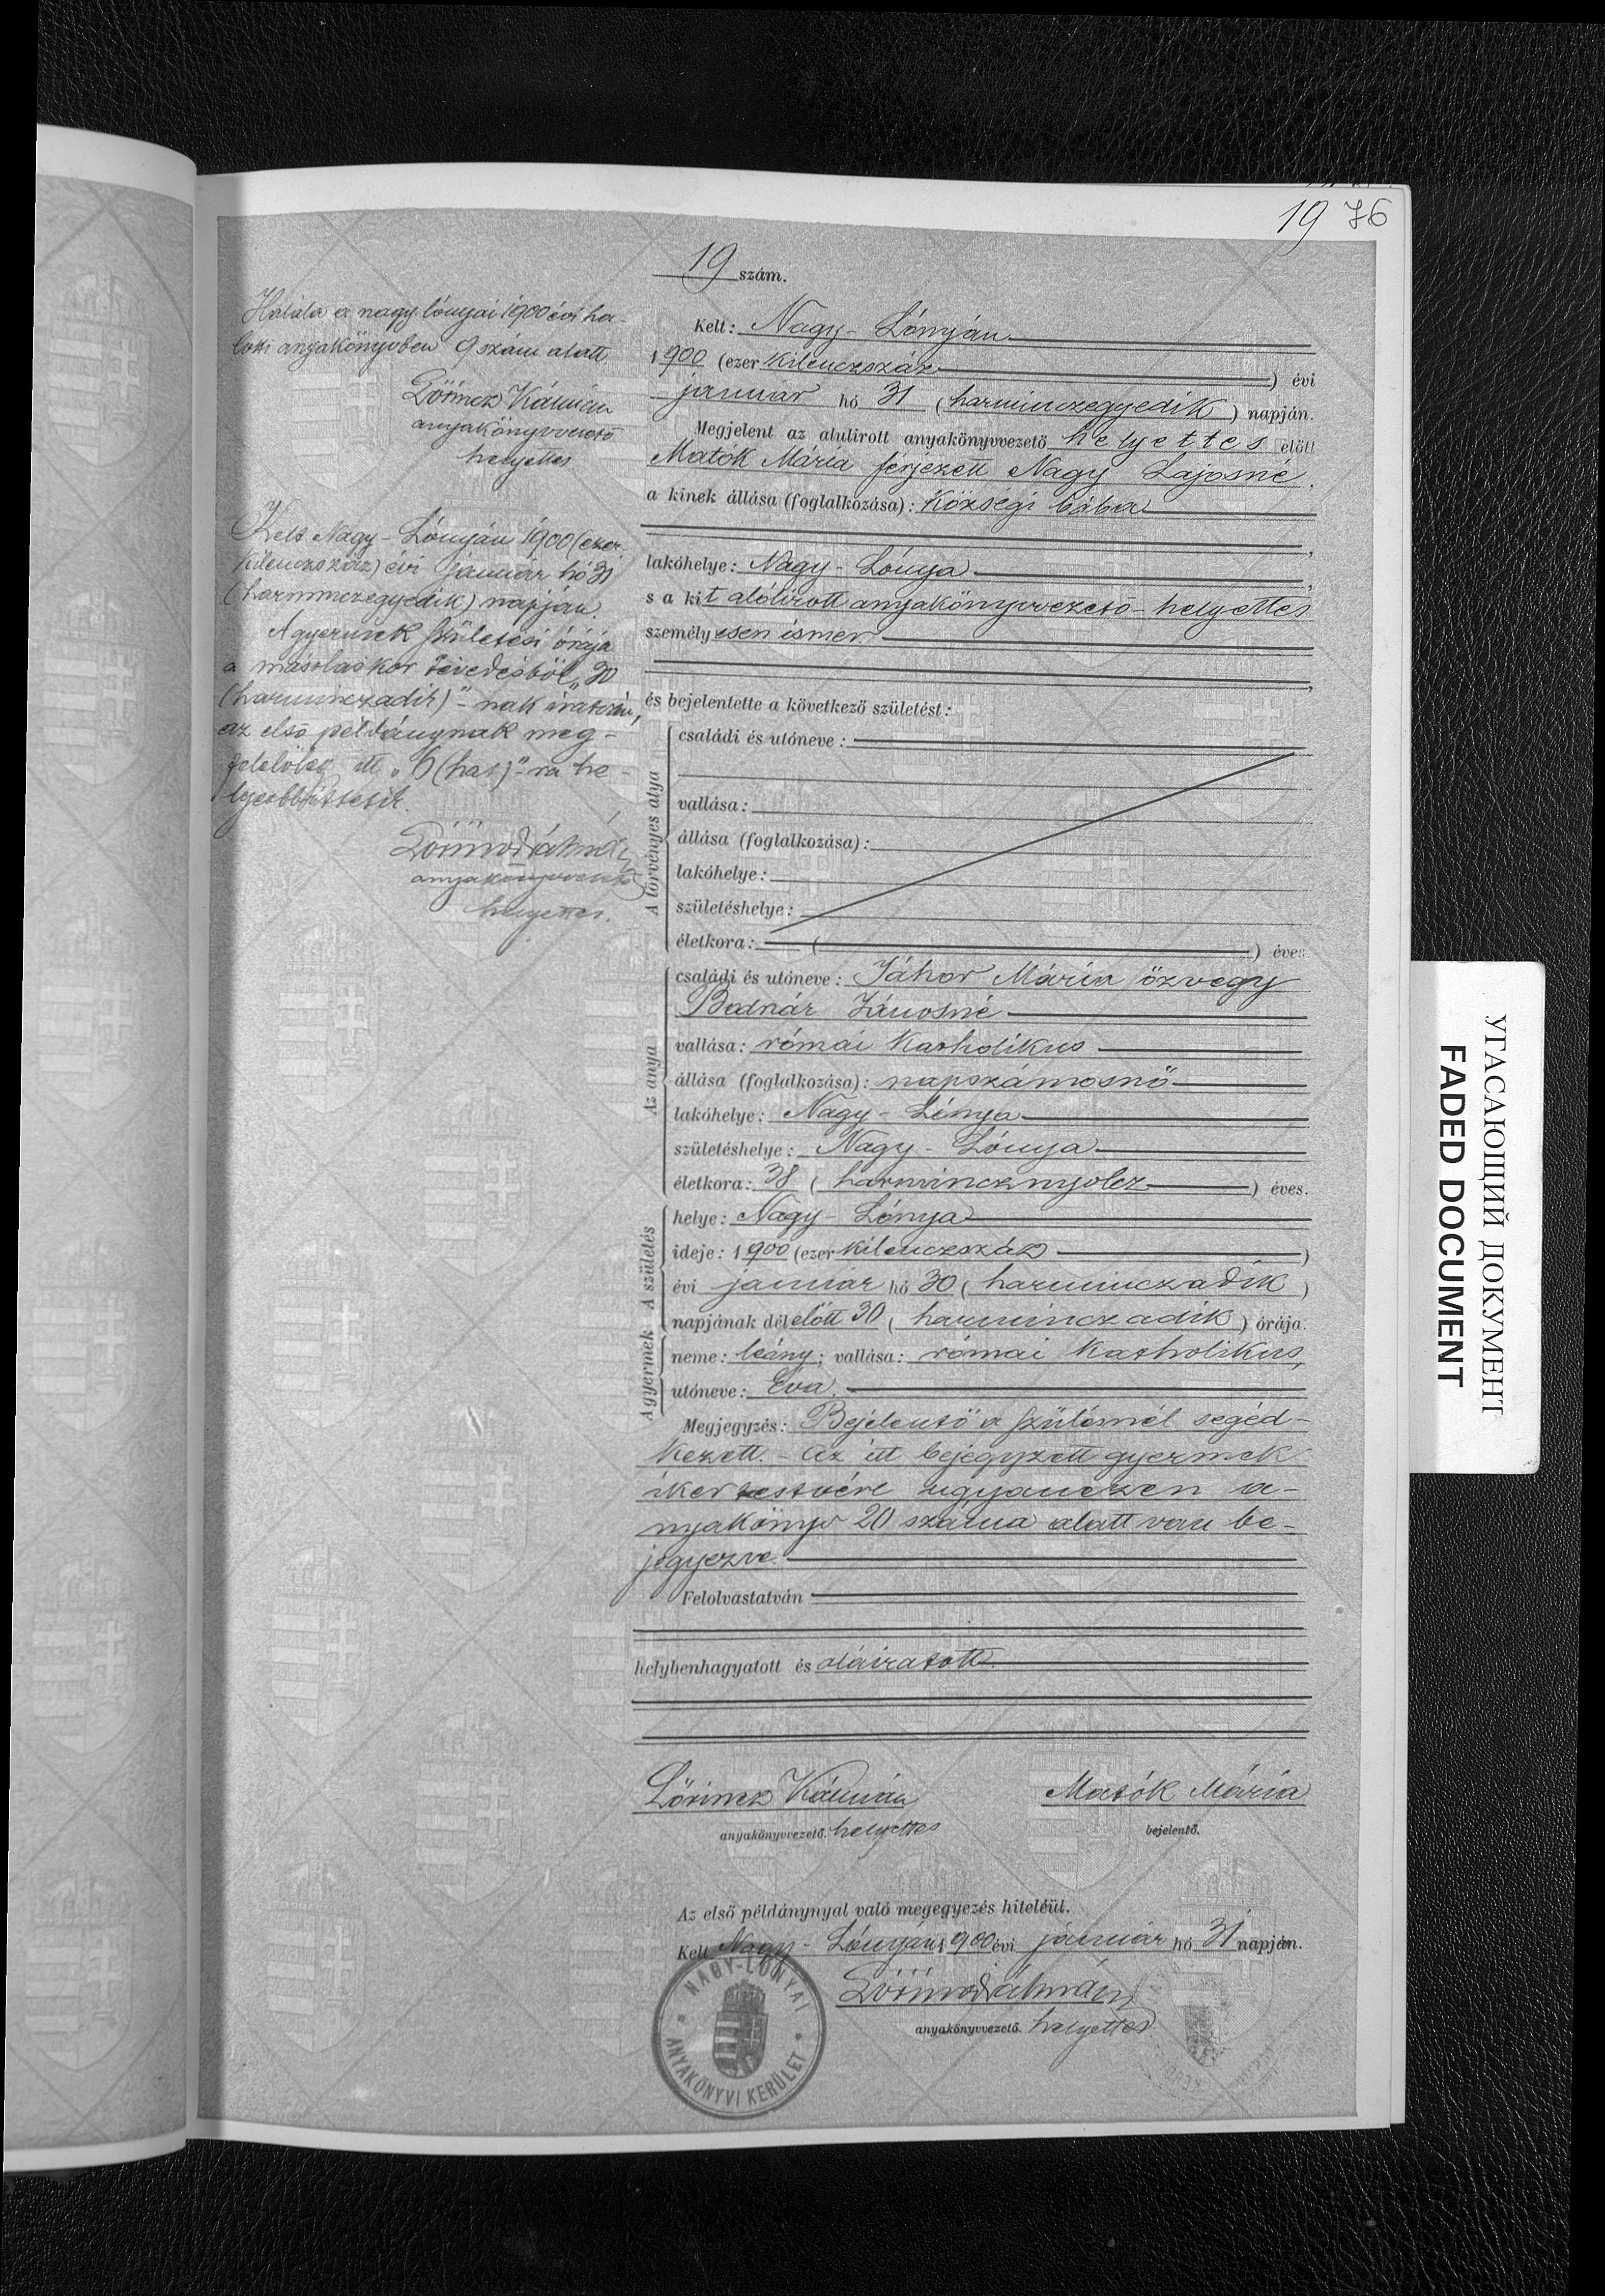 19 76
19 szám.
Halála a nagy lónyai 1900 évi ha-
lotti anyakönyvben 9 szám alatt
Lőrincz Kálmán
anyakönyvvezető
helyettes
Kelt Nagy-Lónyán 1900 (ezer
kilenczszáz) évi január hó 31
(harminczegyedik) napján.
A gyermek születési órája
a másoláskor tévedésből „30
(harminczadik)"-nak iratván,
az első példánynak meg-
felelőleg itt „6 (hat)"-ra he-
lyesbbíttetik.
Lőrincz Kálmán
anyakönyvvezető
helyettes.
Kelt: Nagy-Lónyán
1900 (ezer kilenczszáz) évi
január hó 31 (harminczegyedik) napján.
Megjelent az alulirott anyakönyvvezető helyettes előtt
Matók Mária férjezett Nagy Lajosné,
a kinek állása (foglalkozása): községi bába
lakóhelye: Nagy-Lónya,
s a kit alólirott anyakönyvvezető-helyettes
személyesen ismer
és bejelentette a következő születést:
A törvényes atya
családi és utóneve:
vallása:
állása (foglalkozása):
lakóhelye:
születéshelye:
életkora: ( ) éves.
Az anya
családi és utóneve: Jáhor Mária özvegy
Bodnár Jánosné
vallása: római katholikus
állása (foglalkozása): napszámosnő
lakóhelye: Nagy-Lónya
születéshelye: Nagy-Lónya
életkora: 38 (harmincznyolcz) éves.
A születés
helye: Nagy-Lónya
ideje: 1900 (ezer kilenczszáz)
évi január hó 30 (harminczadik)
napjának délelőtt 30 (harminczadik) órája.
A gyermek
neme: leány; vallása: római katholikus,
utóneve: Éva.
Megjegyzés: Bejelentő a szülésnél segéd-
kezett. - Az itt bejegyzett gyermek
ikertestvére ugyanezen a-
nyakönyv 20 száma alatt van be-
jegyezve.
Felolvastatván
helybenhagyatott és aláiratott.
Lőrincz Kálmán
anyakönyvvezető. helyettes
Matók Mária
bejelentő.
Az első példánynyal való megegyezés hiteléül.
Kelt Nagy-Lónyán 1900 évi január hó 31 napján.
Lőrincz Kálmán
anyakönyvvezető. helyettes
NAGY-LÓNYAI
ANYAKÖNYVI KERÜLET
УГАСАЮЩИЙ ДОКУМЕНТ
FADED DOCUMENT